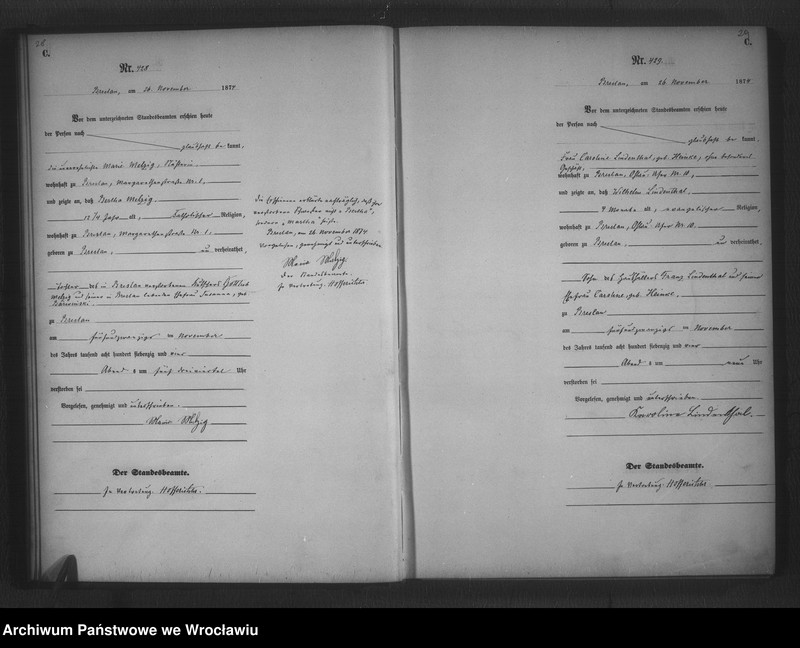 28
C.
Nr. 428
Breslau, am 26 November 1874
Vor dem unterzeichneten Standesbeamten erschien heute
der Person nach
glaubhaft be kannt,
die unverehelichte Marie Melzig, Näherin
wohnhaft zu Breslau, Margarethenstraße Nr. 1.
und zeigte an, daß Bertha Melzig
12 ¾ Jahr alt, katholischer Religion,
wohnhaft zu Breslau, Margarethenstraße Nr. 1.
geboren zu Breslau, un verheirathet,
Tochter des in Breslau verstorbenen Gottlieb
Melzig und seiner in Breslau Ehefrau Susanna, geb.
zu Breslau
am fünfundzwanzigst en November
des Jahres tausend acht hundert siebenzig und vier
Abend s um fünf dreiviertel Uhr
verstorben sei
Vorgelesen, genehmigt und unterschrieben
Marie Melzig
Der Standesbeamte.
In Vertretung.
Die erklärte nachträglich, daß ihre
verstorbene Schwester nicht "Bertha",
sondern "Martha" heiße.
Breslau, am 26 November 1874
Vorgelesen, genehmigt und unterschrieben
Marie Melzig.
Der Standesbeamte.
In Vertretung
29
C.
Nr. 429.
Breslau, am 26 November 1874
Vor dem unterzeichneten Standesbeamten erschien heute
der Person nach
glaubhaft be kannt,
Frau Caroline Lindenthal, geb. Heinke, ohne besonderes
Geschäft,
wohnhaft zu Breslau, Ufer Nr. 10,
und zeigte an, daß Wilhelm Lindenthal
9 Monate alt, evangelischer Religion,
wohnhaft zu Breslau, Ufer Nr. 10.
geboren zu Breslau, un verheirathet,
Sohn des Franz Lindenthal und seiner
Ehefrau Caroline, geb. Heinke,
zu Breslau
am fünfundzwanzigst en November
des Jahres tausend acht hundert siebenzig und vier
Abend s um neun Uhr
verstorben sei
Vorgelesen, genehmigt und unterschrieben
Karoline Lindenthal.
Der Standesbeamte.
In Vertretung.
Archiwum Państwowe we Wrocławiu